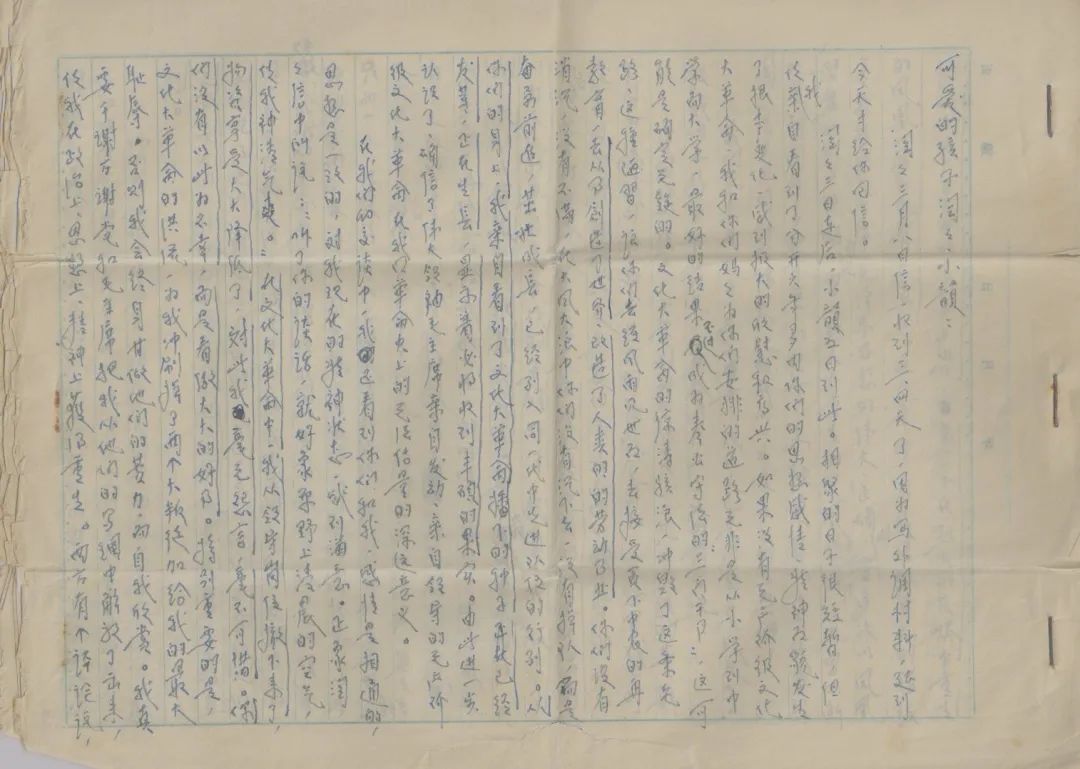 可爱的孩子润之小韻：
润之三月八日信，收到三、四天了，因为写外调材料，延到
今天才给你回信。
润之三日走后，小韻五日到此。相聚的日子很短暂，但
使我亲自看到了分开大半多月你们的思想感情、精神面貌发生
了很大变化，感到很大的欣慰和高兴。如果没有无产阶级文化
大革命，我和你们妈妈为你们安排的道路无非是从小学到中
学而大学，最好的结果不过成为奉公守法的三，这可
能是确定无疑的。文化大革命的滚滚洪浪，冲毁了这条
路，这种进習，让你们去经风雨见世面，去接受贫下中农的再
教育，去从事创造了世界、改造了人类的劳动事业。你们没有
消沉，没有不满，在大风大浪中你们没有沉下去，没有掉队，而是
奋勇前进，茁壮成长，已经列入同一代中先进队伍的行列。从
你们的身上，我亲自看到了文化大革命播下的种子早就已经
发芽，正在生长，显示着必将收到丰硕的果实。由此进一步
认识了、确信了伟大领袖毛主席亲自发动、亲自领导的无产阶
级文化大革命在我们革命史上的无法估量的深远意义。
在我们的交谈中，我还看到你们和我，感情是相通的，
思想是一致的，对我现在的精神状态，感到满意。正象润
之信中所说：“听了你的谈话，就好象原野上凌晨的空气，
使我神清气爽。”在文化大革命中，我从领导岗位撤下来了，
物资享受大大降低了，对此我毫无怨言，毫不可惜。你
们没有以此为不幸，而是看做大大的好事。特别重要的是，
文化大革命的洪流，为我冲刷掉了两个大叛徒加给我的最大
耻辱。否则我会终身甘做他们的苦力，而自我欣赏。我真
要千谢万谢党和毛主席把我从他们的手中解放了出来，
使我在政治上、思想上、精神上获得重生。两方有个评论说，